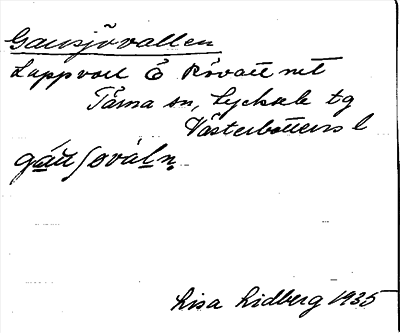 Gausjövallen
Lappvall Ö Rövattnet
Tärna sn, Lycksele tg
Västerbottens l
Lisa Lidberg 1935